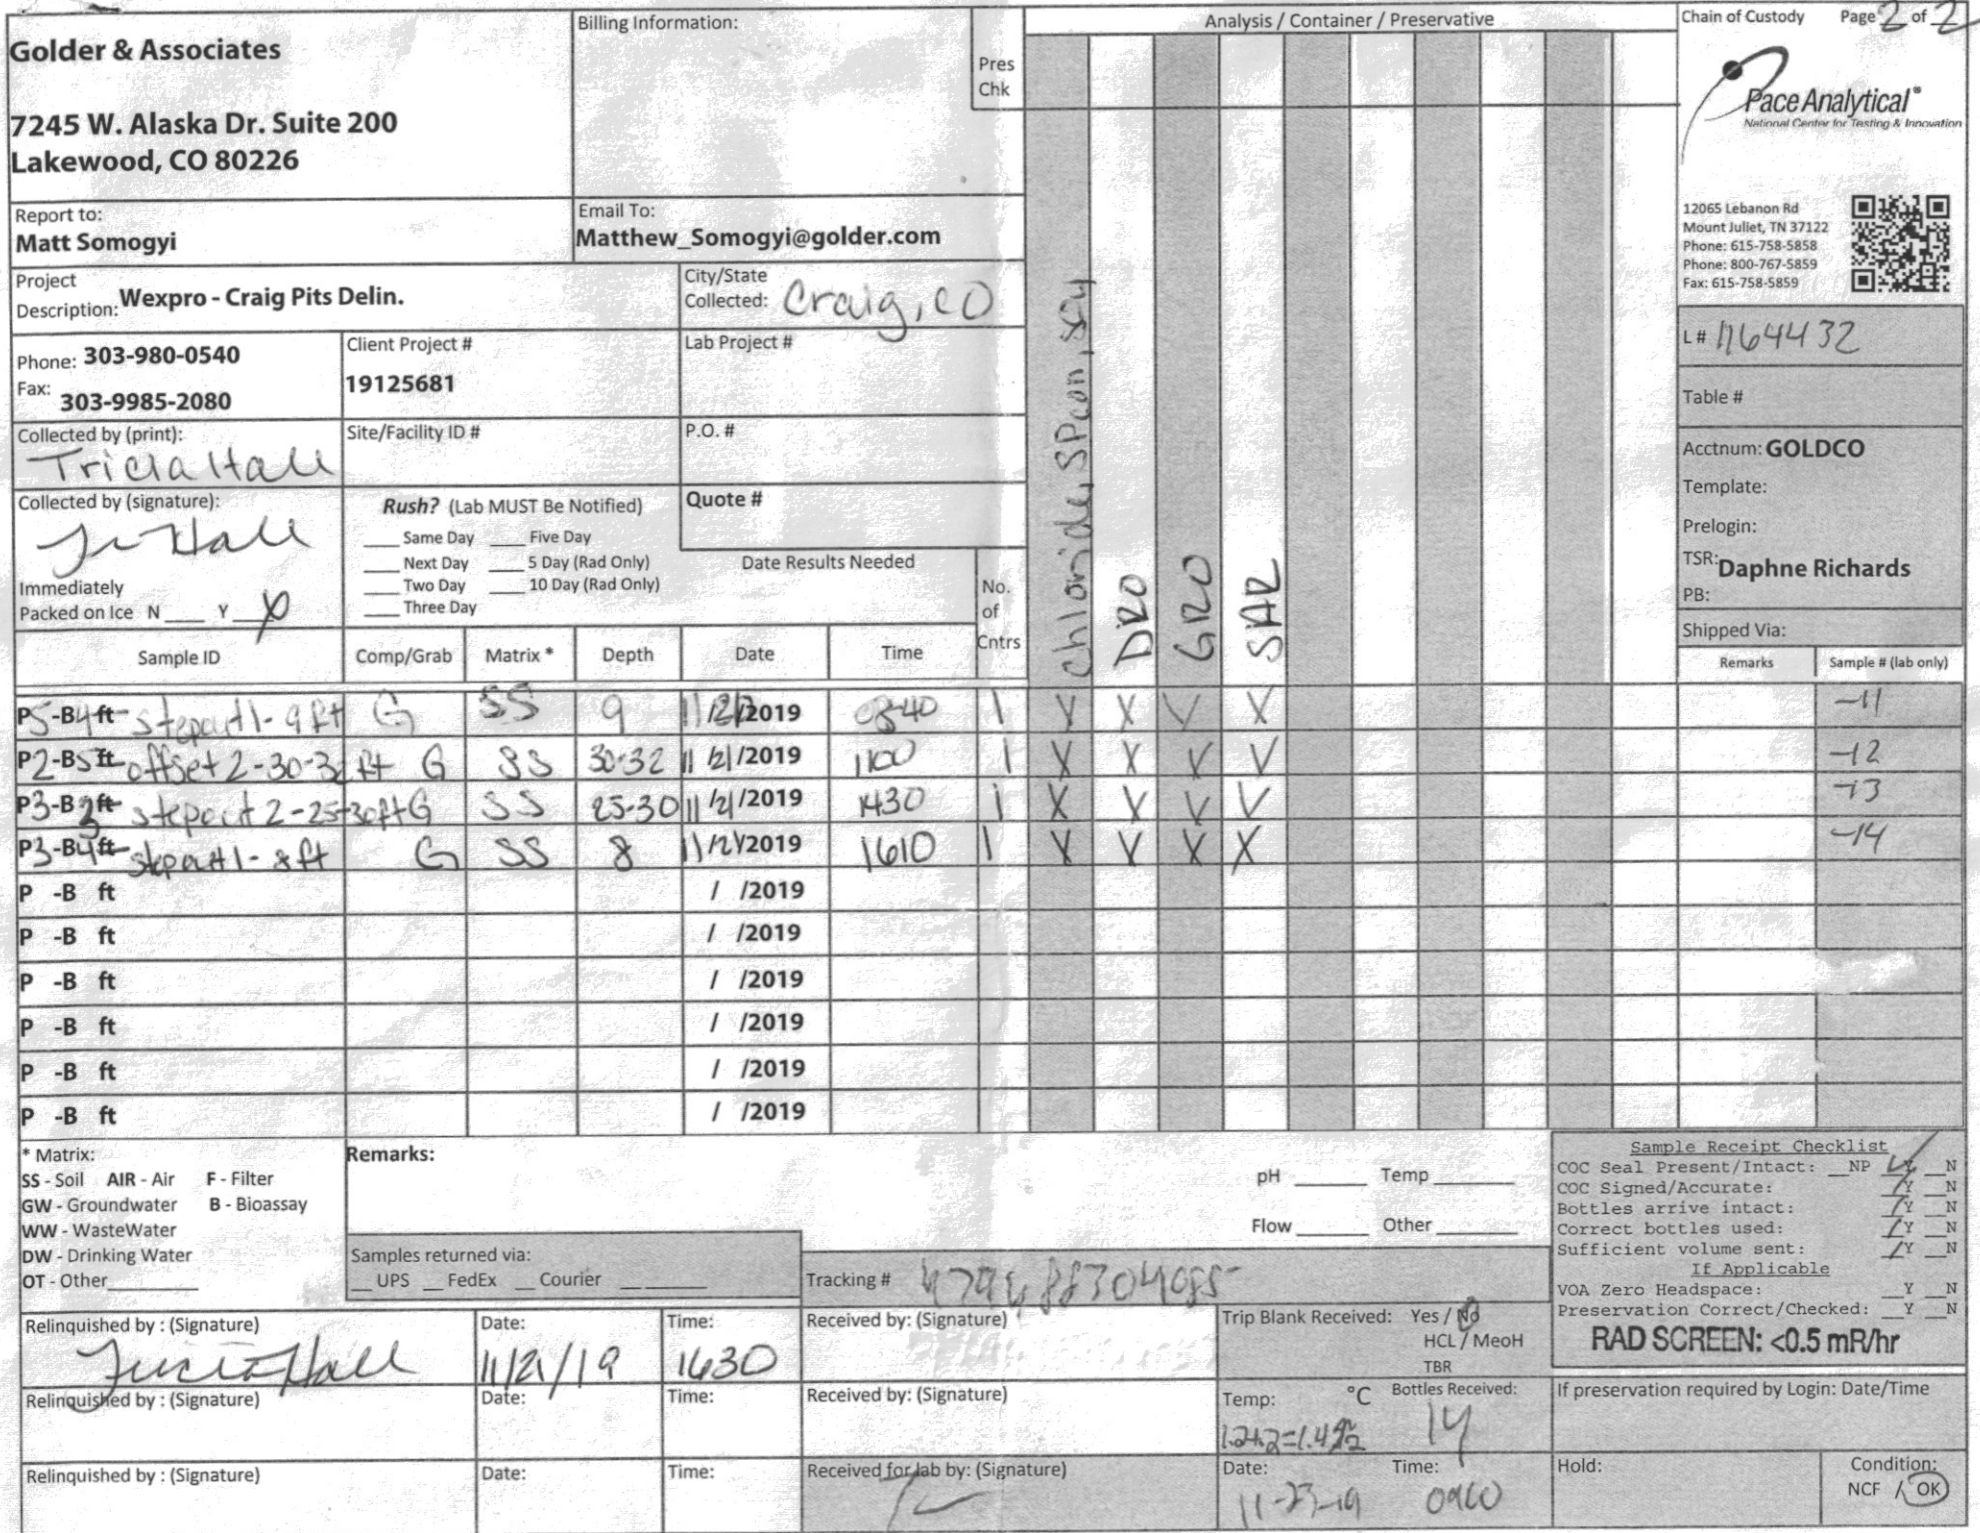 Golder & Associates
7245 W. Alaska Dr. Suite 200
Lakewood, CO 80226
Billing Information:
Pres
Chk
Analysis / Container / Preservative
Chain of Custody Page 2 of 2
Pace Analytical®
National Center for Testing & Innovation
12065 Lebanon Rd
Mount Juliet, TN 37122
Phone: 615-758-5858
Phone: 800-767-5859
Fax: 615-758-5859
Report to:
Matt Somogyi
Email To:
Matthew_Somogyi@golder.com
Project
Description: Wexpro - Craig Pits Delin.
City/State
Collected: Craig, CO
Phone: 303-980-0540
Fax: 303-9985-2080
Client Project #
19125681
Lab Project #
L# 1164432
Table #
Collected by (print):
Tricia Hall
Site/Facility ID #
P.O. #
Acctnum: GOLDCO
Template:
Prelogin:
TSR: Daphne Richards
PB:
Shipped Via:
Collected by (signature):
Hall
Rush? (Lab MUST Be Notified)
___ Same Day ___ Five Day
___ Next Day ___ 5 Day (Rad Only)
___ Two Day ___ 10 Day (Rad Only)
___ Three Day
Quote #
Date Results Needed
Immediately
Packed on Ice N ___ Y X
No.
of
Cntrs
chloride, SPcon,
DRO
GRO
SAR
Sample ID Comp/Grab Matrix * Depth Date Time Remarks Sample # (lab only)
P5-B4 ft stepout 1- 9 ft G SS 9 11/21/2019 0840 1 X X X X -11
P2-B5 ft offset 2-30-32 ft G SS 30-32 11/21/2019 1100 1 X X X X -12
P3-B3 ft stepout 2-25-30ft G SS 25-30 11/21/2019 1430 1 X X X X -13
P3-B4 ft stepout 1- 8 ft G SS 8 11/21/2019 1610 1 X X X X -14
P -B ft / /2019
P -B ft / /2019
P -B ft / /2019
P -B ft / /2019
P -B ft / /2019
P -B ft / /2019
* Matrix:
SS - Soil AIR - Air F - Filter
GW - Groundwater B - Bioassay
WW - WasteWater
DW - Drinking Water
OT - Other
Remarks:
pH ___ Temp ___
Flow ___ Other ___
Samples returned via:
__ UPS __ FedEx __ Courier ___
Tracking #
Sample Receipt Checklist
COC Seal Present/Intact: __NP Y __N
COC Signed/Accurate: Y __N
Bottles arrive intact: Y __N
Correct bottles used: Y __N
Sufficient volume sent: Y __N
If Applicable
VOA Zero Headspace: __Y __N
Preservation Correct/Checked: __Y __N
RAD SCREEN: <0.5 mR/hr
Relinquished by : (Signature)
Tricia Hall
Date:
11/21/19
Time:
1630
Received by: (Signature)
Trip Blank Received: Yes / No
HCL / MeoH
TBR
Relinquished by : (Signature)
Date:
Time:
Received by: (Signature)
Temp: °C
Bottles Received:
14
If preservation required by Login: Date/Time
Relinquished by : (Signature)
Date:
Time:
Received for lab by: (Signature)
Date:
11-23-19
Time:
Hold:
Condition:
NCF / OK